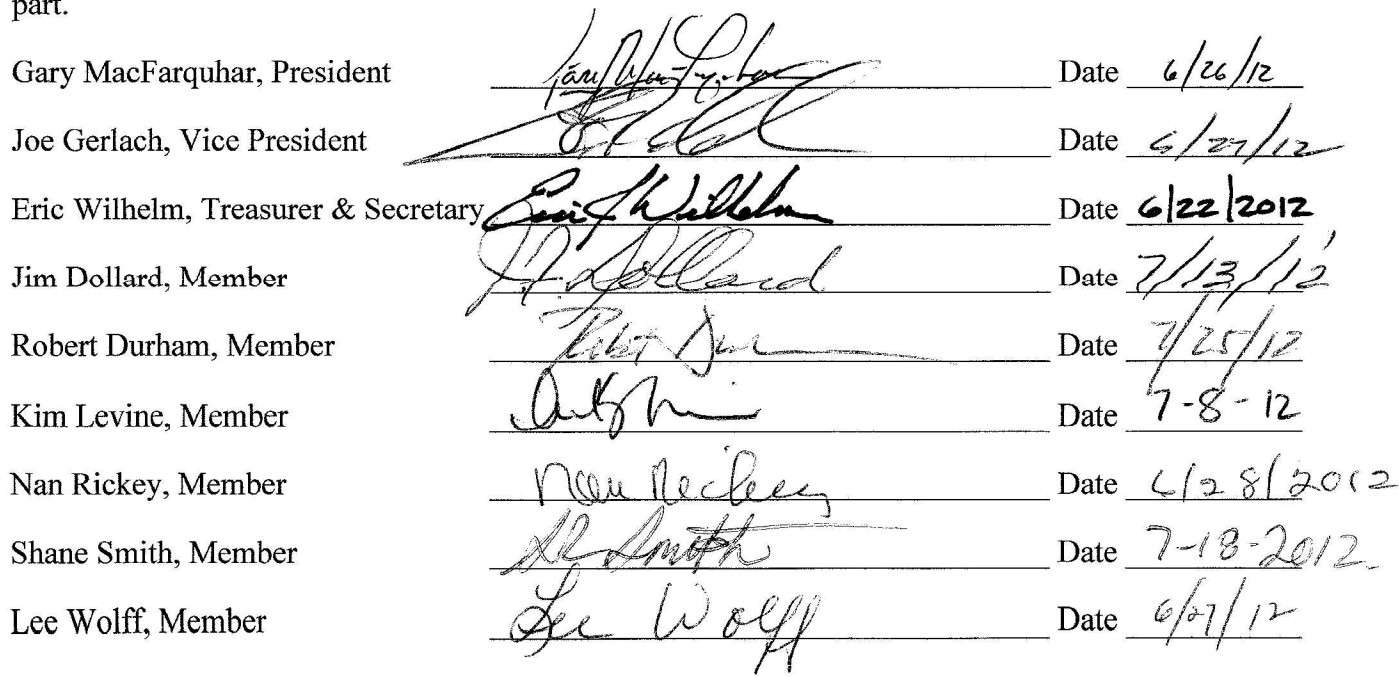 part.
Gary MacFarquhar, President Date 6/26/12
Joe Gerlach, Vice President Date 6/27/12
Eric Wilhelm, Treasurer & Secretary Eric J Wilhelm Date 6/22/2012
Jim Dollard, Member J. Dollard Date 7/13/12
Robert Durham, Member Date 7/25/12
Kim Levine, Member Date 7-8-12
Nan Rickey, Member Nan Rickey Date 6/28/2012
Shane Smith, Member Smith Date 7-18-2012.
Lee Wolff, Member Lee Wolff Date 6/27/12